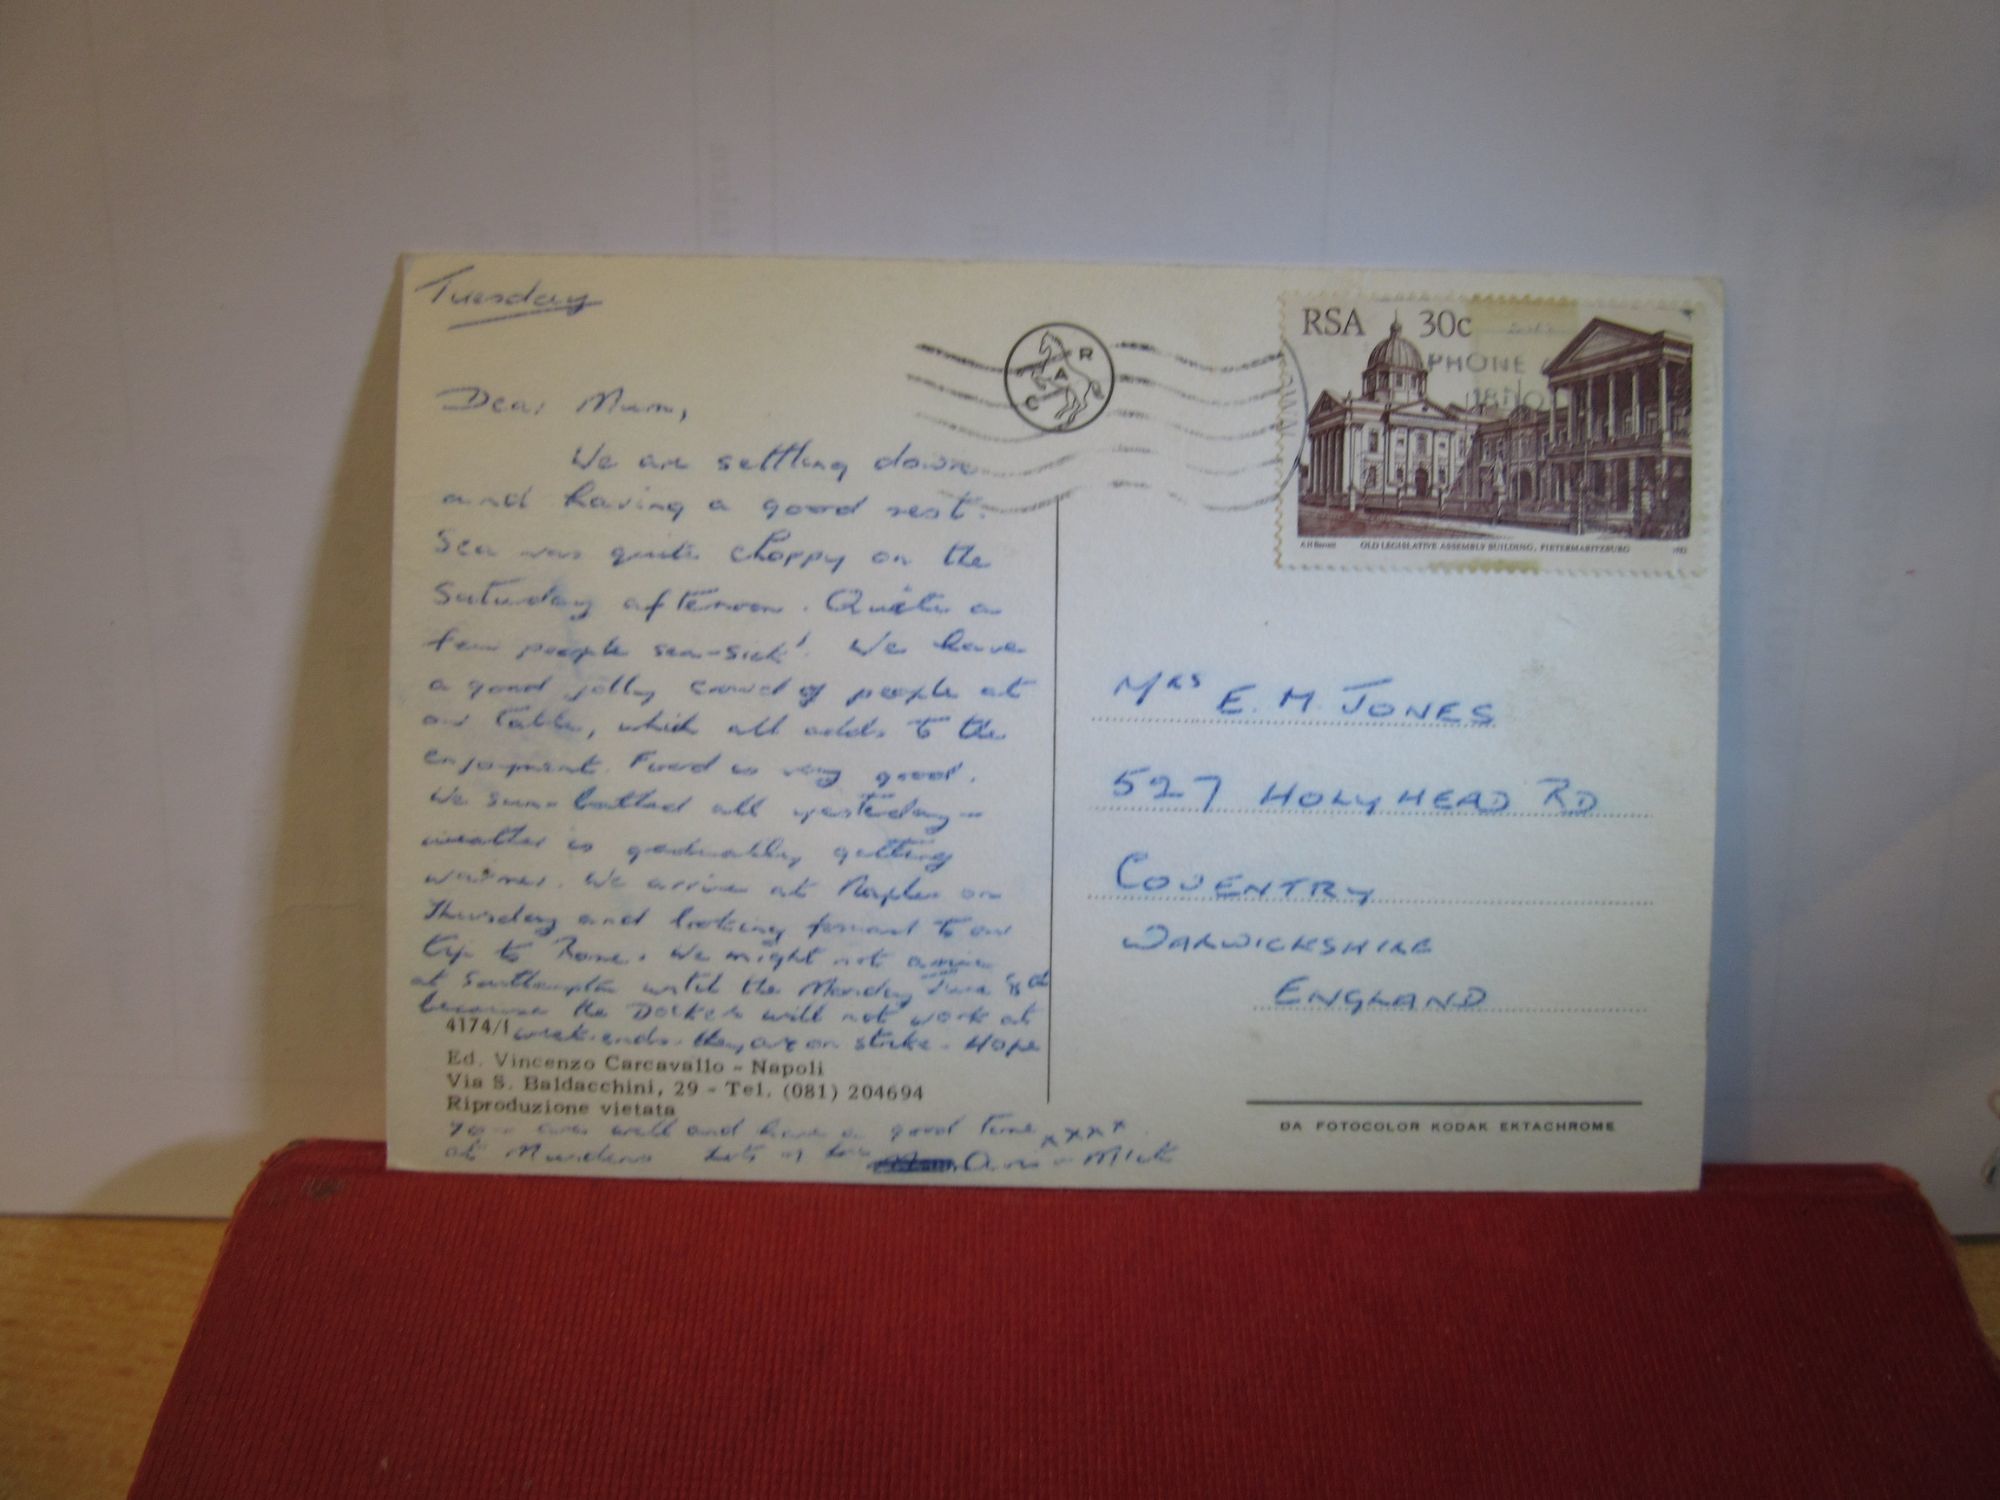 Tuesday
Dear Mum,
We are settling down
and having a good rest.
Sea was quite choppy on the
Saturday afternoon. Quite a
few people sea-sick! We have
a good jolly crowd of people at
our table, which all adds to the
enjoyment. Food is very good.
We sun-bathed all yesterday -
weather is gradually getting
warmer. We arrive at Naples on
Thursday and looking forward to our
trip to Rome. We might not arrive
at Southampton until the Monday June 8th
because the Dockers will not work at
weekends. they are on strike - Hope
4174/1
Ed. Vincenzo Carcavallo - Napoli
Via S. Baldacchini, 29 - Tel. (081) 204694
Riproduzione vietata
you are well and have a good time xxxx
at Lots of love Mick
R
A
C
RSA 30c
PHONE
OLD LEGISLATIVE ASSEMBLY BUILDING, PIETERMARITZBURG
MRS E. M. JONES
527 HOLYHEAD RD
COVENTRY
WARWICKSHIRE
ENGLAND
DA FOTOCOLOR KODAK EKTACHROME